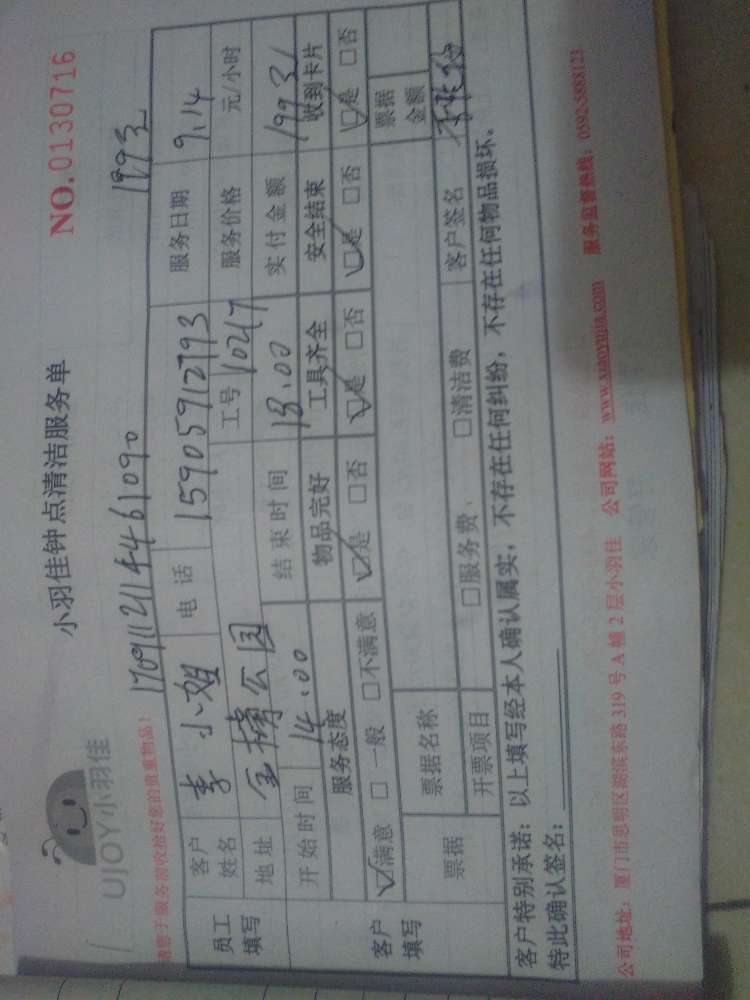 UJOY小羽佳
小羽佳钟点清洁服务单
NO.0130716
请您于服务前收捡好您的贵重物品!
1993
员工填写
客户姓名 李小姐 电话 15905912793 服务日期 9.14
地址 公园 工号 10217 服务价格 元/小时
开始时间 14.00 结束时间 18.00 实付金额 1993
客户填写
服务态度 物品完好 工具齐全 安全结束 收到卡片
☑满意 □一般 □不满意 ☑是 □否 ☑是 □否 ☑是 □否 ☑是 □否
票据 票据名称 票据金额
开票项目 □服务费 □清洁费 客户签名
客户特别承诺:以上填写经本人确认属实,不存在任何纠纷,不存在任何物品损坏。
特此确认签名:
公司地址:厦门市思明区湖滨东路319号A幢2层小羽佳 公司网站:www.xiaoyujia.com 服务监督热线:0592-5888123